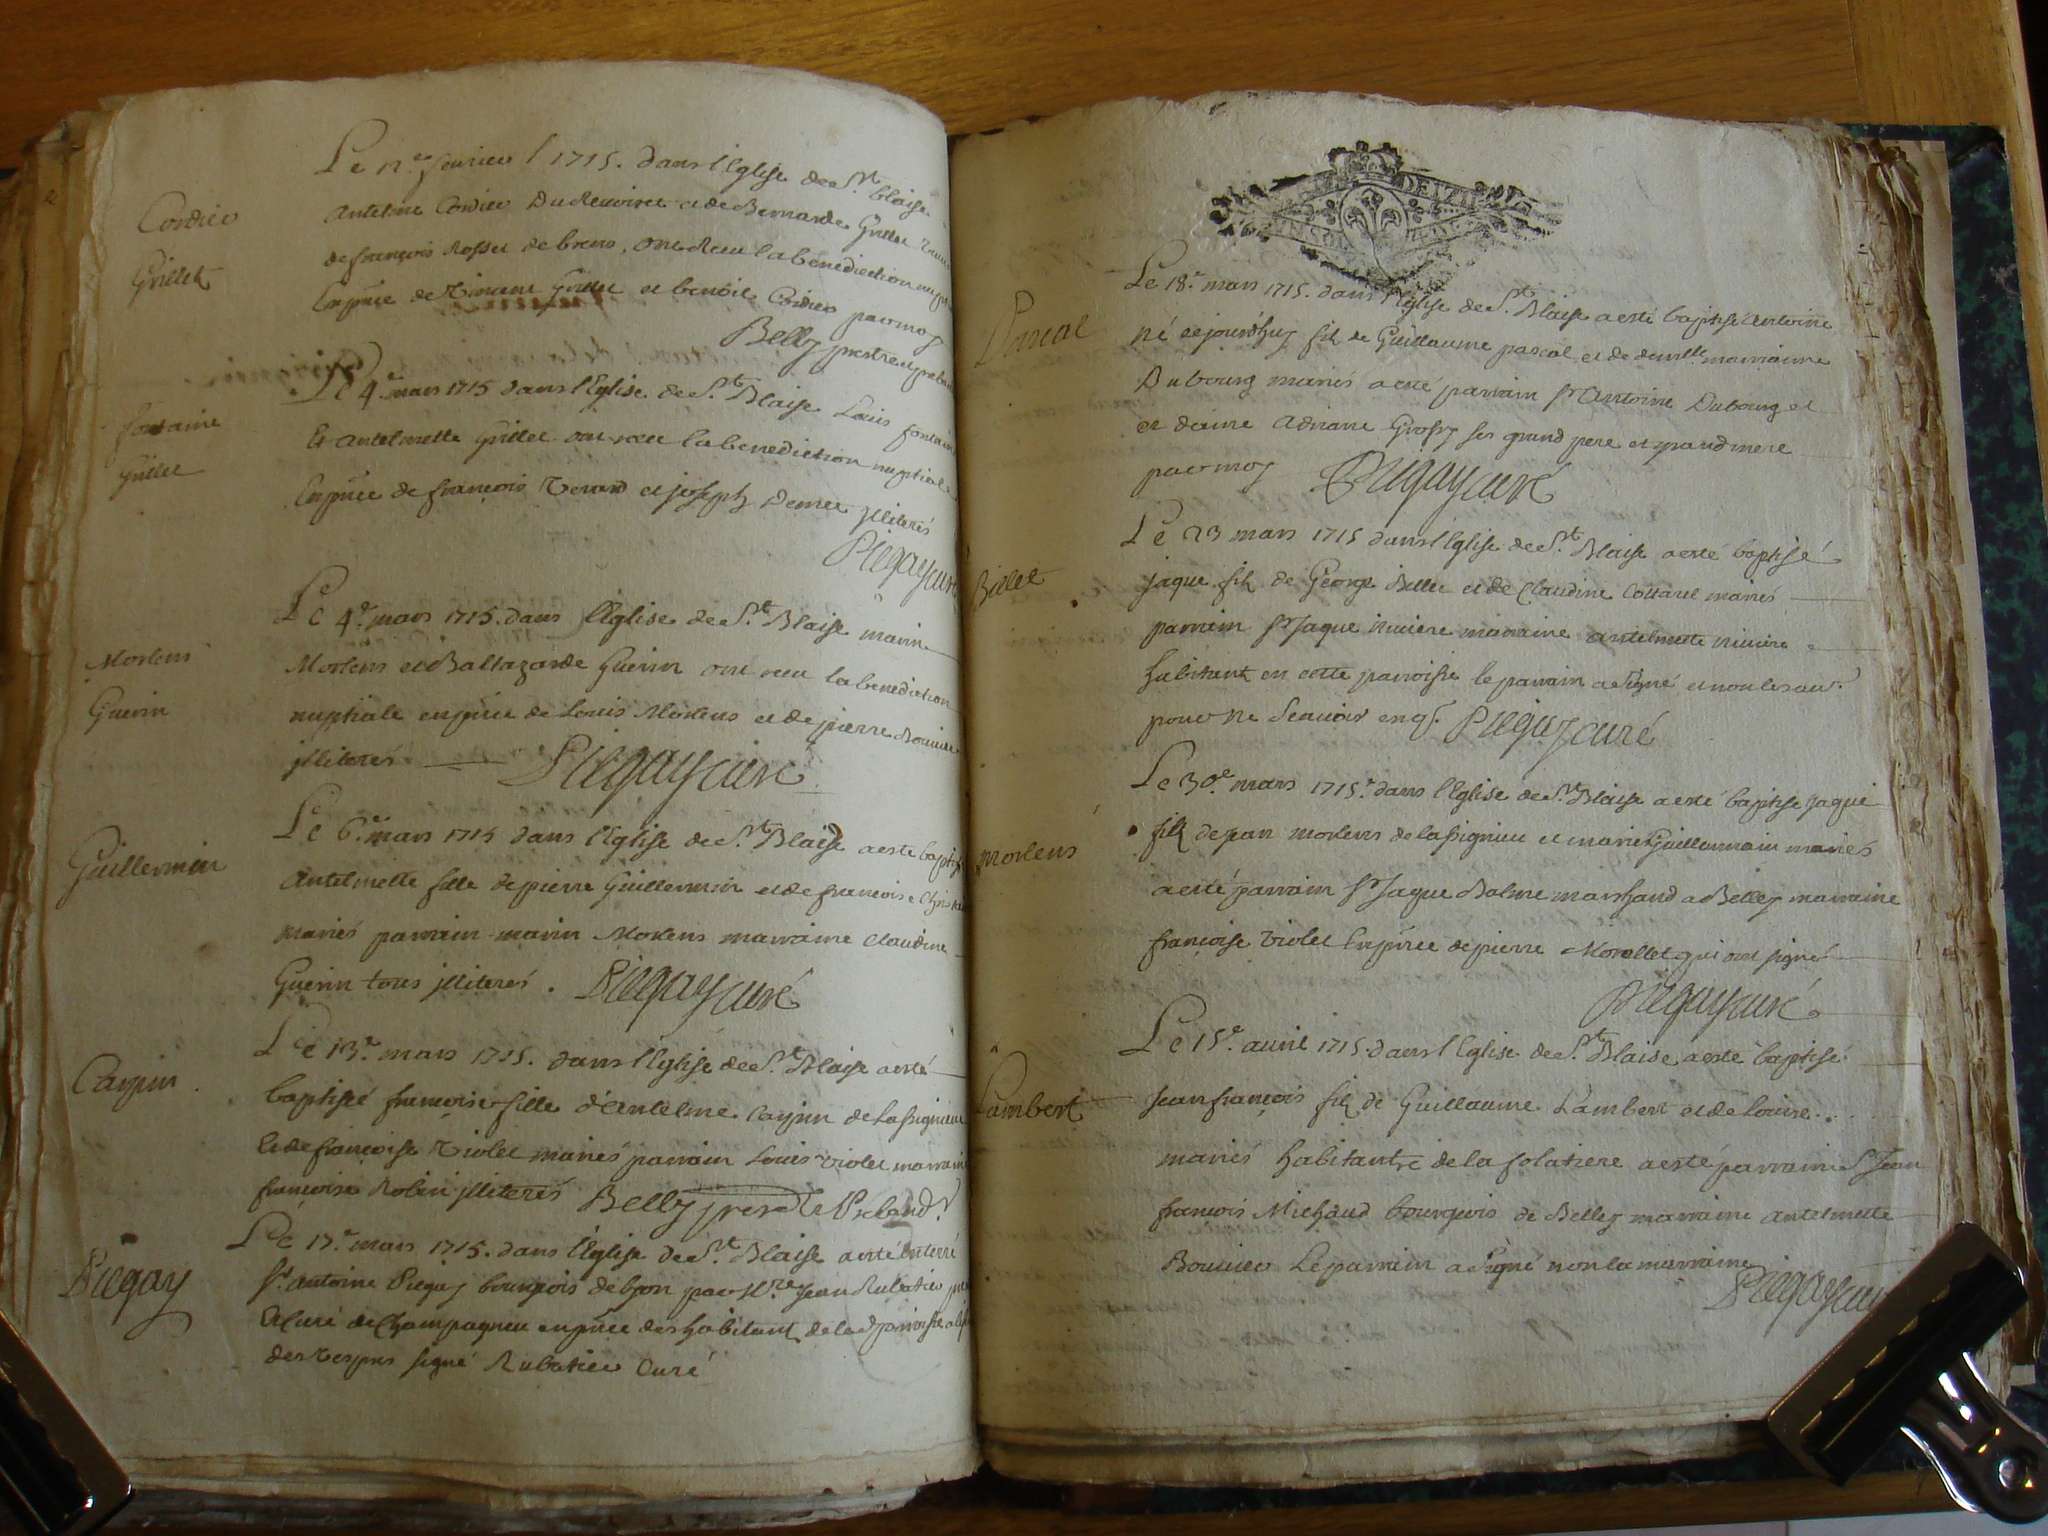 Cordier
Grillet
Le 12e feurier 1715. dans l'Eglise de St. blaise
Antelme Cordier Du et de Bernarde Grillet
de françois Rosset de brens, ont Receu la benediction
En pñce de Grillet et benoit Cordier par moy
Belly prestre
fontaine
Grillet
Le 4e mars 1715 dans l'Eglise de St. Blaise Louis fontaine
Et antelmette Grillet ont receu la benediction nuptiale
En pñce de françois et joseph Demee jlliterés
Piegay curé
Morlens
Guerin
Le 4e mars 1715. dans l'Eglise de St. Blaise marin
Morlens et Baltazarde Guerin ont receu la benediction
nuptiale en pñce de Louis Morlens et de pierre
jlliterés Piegay curé
Guillermin
Le 6e mars 1715 dans l'Eglise de St. Blaise a esté baptisé
Antelmette fille de pierre Guillermin et de francoise
mariés parrain marin Morlens marraine Claudine
Guerin tous jlliterés. Piegay curé
Carpin
Le 13e mars 1715. dans l'Eglise de St. Blaise a esté
baptisée francoise fille d'Antelme Carpin de Lassignieu
et de françoise Violet mariés parrain Louis violet marraine
françoise Robin jlliterés Belly prestre Prebend.
Piegay
Le 17e mars 1715. dans l'Eglise de St. Blaise a esté enterré
Sr. antoine Piegay bourgeois de lyon par Mre. Jean Rubatier
Curé de Champagneu en pñce des habitant de lad parroisse
des vespres signé Rubatier Curé
DEVZ
Pascal
Le 18e mars 1715. dans l'Eglise de St. Blaise a esté baptisé antoine
né cejourd'huy fils de Guillaume pascal et de demlle. marianne
Dubourg mariés a esté parrain sr Antoine Dubourg et
et dame Adriane Grossy ses grand pere et grand mere
par moy Piegay curé
Billet
Le 23 mars 1715 dans l'Eglise de St. Blaise a esté baptisé
jaque fils de George Billet et de Claudine Collavet mariés
parrain sr Jaque riuiere marraine antelmette riuiere
habitant en cette parroisse le parrain a signé et non les aut.
pour ne sçauoir enq. Piegay curé
morlens
Le 30e mars 1715. dans l'Eglise de St. Blaise a esté baptisé jaque
fils de jean morlens de lassignieu et marie Guillermain mariés
a esté parrain sr Jaque Balme marchand a Belley marraine
françoise violet En pñce de pierre Morellet qui ont signés
Piegay curé
Lambert
Le 15e. auril 1715. dans l'Eglise de St. Blaise a esté baptisé
Jean françois fils de Guillaume Lambert et de Louise
mariés habitant de la solatiere a esté parrain Sr Jean
françois Michaud bourgeois de Belley marraine antelmette
Bouuier Le parrain a signé non la marraine
Piegay curé